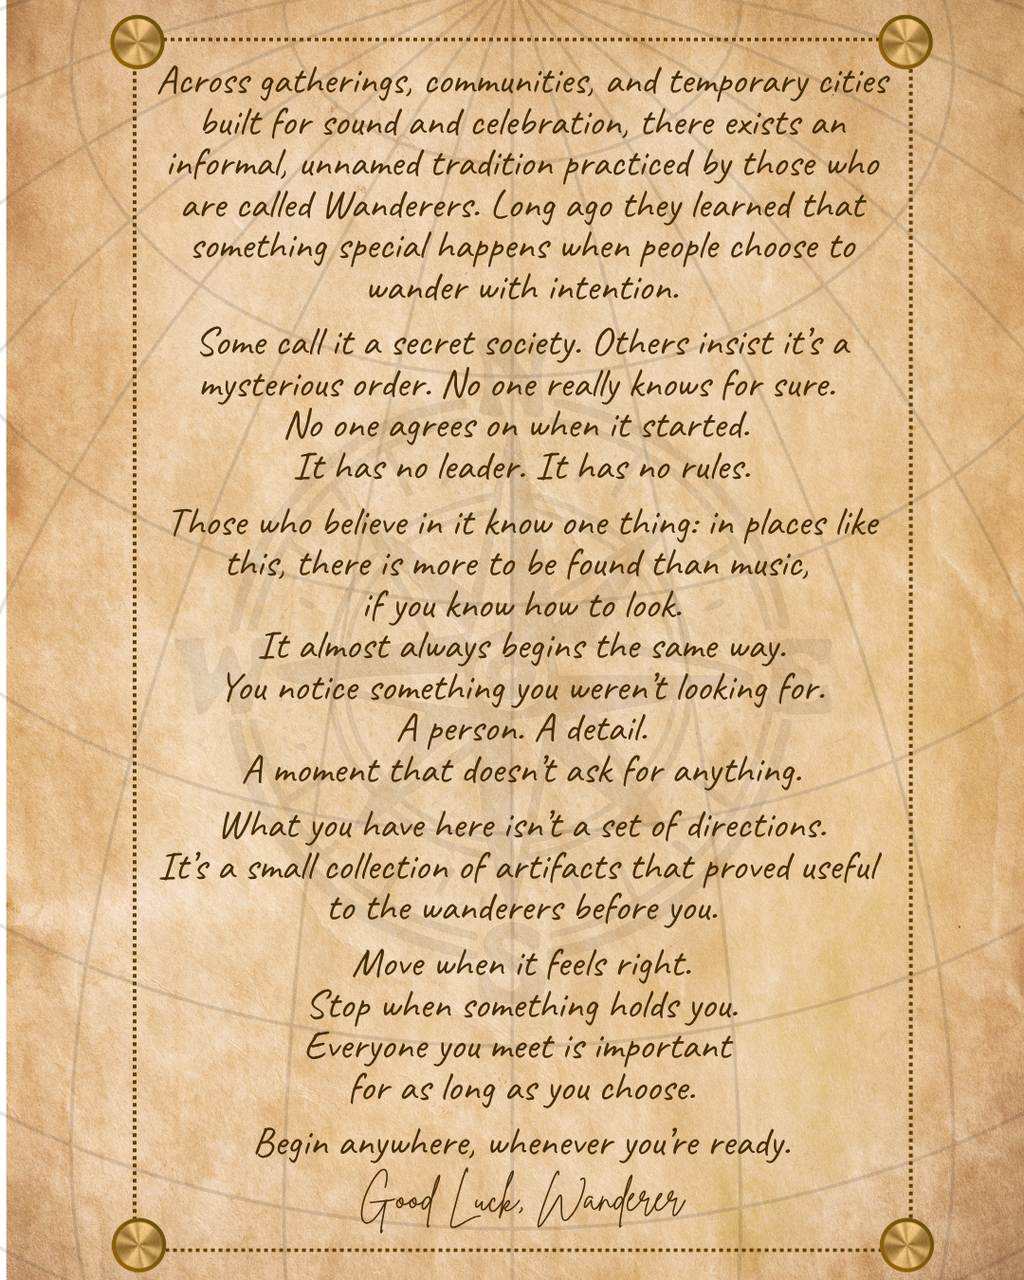 Across gatherings, communities, and temporary cities
built for sound and celebration, there exists an
informal, unnamed tradition practiced by those who
are called Wanderers. Long ago they learned that
something special happens when people choose to
wander with intention.
Some call it a secret society. Others insist it's a
mysterious order. No one really knows for sure.
No one agrees on when it started.
It has no leader. It has no rules.
Those who believe in it know one thing: in places like
this, there is more to be found than music,
if you know how to look.
It almost always begins the same way.
You notice something you weren't looking for.
A person. A detail.
A moment that doesn't ask for anything.
What you have here isn't a set of directions.
It's a small collection of artifacts that proved useful
to the wanderers before you.
Move when it feels right.
Stop when something holds you.
Everyone you meet is important
for as long as you choose.
Begin anywhere, whenever you're ready.
Good Luck, Wanderer